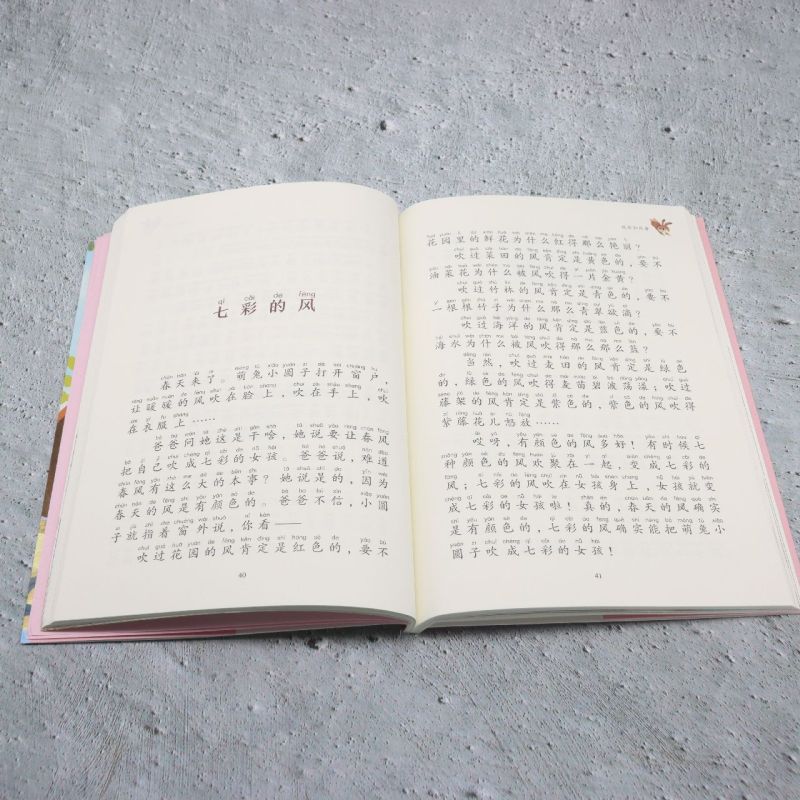 七彩的风
春天来了。萌兔小圆子打开窗户，
让暖暖的风吹在脸上，吹在手上，吹
在衣服上……
爸爸问她这是干啥，她说要让春风
把自己吹成七彩的女孩。爸爸说，难道
春风有这么大的本事？她说是的，因为
春天的风是有颜色的。爸爸不信，小圆
子就指着窗外说，你看——
吹过花园的风肯定是红色的，要不
40
花园里的鲜花为什么红得那么艳丽？
吹过菜田的风肯定是黄色的，要不
油菜花为什么被风吹得一片金黄？
吹过竹林的风肯定是青色的，要不
一根根竹子为什么那么青翠欲滴？
吹过海洋的风肯定是蓝色的，要不
海水为什么被风吹得那么那么蓝？
当然，吹过麦田的风肯定是绿色
的，绿色的风吹得麦苗碧波荡漾；吹过
藤架的风肯定是紫色的，紫色的风吹得
紫藤花儿怒放……
哎呀，有颜色的风多好！有时候七
种颜色的风欢聚在一起，变成七彩的
风；七彩的风吹在女孩身上，女孩就变
成七彩的女孩啦！真的，春天的风确实
是有颜色的，七彩的风确实能把萌兔小
圆子吹成七彩的女孩！
41